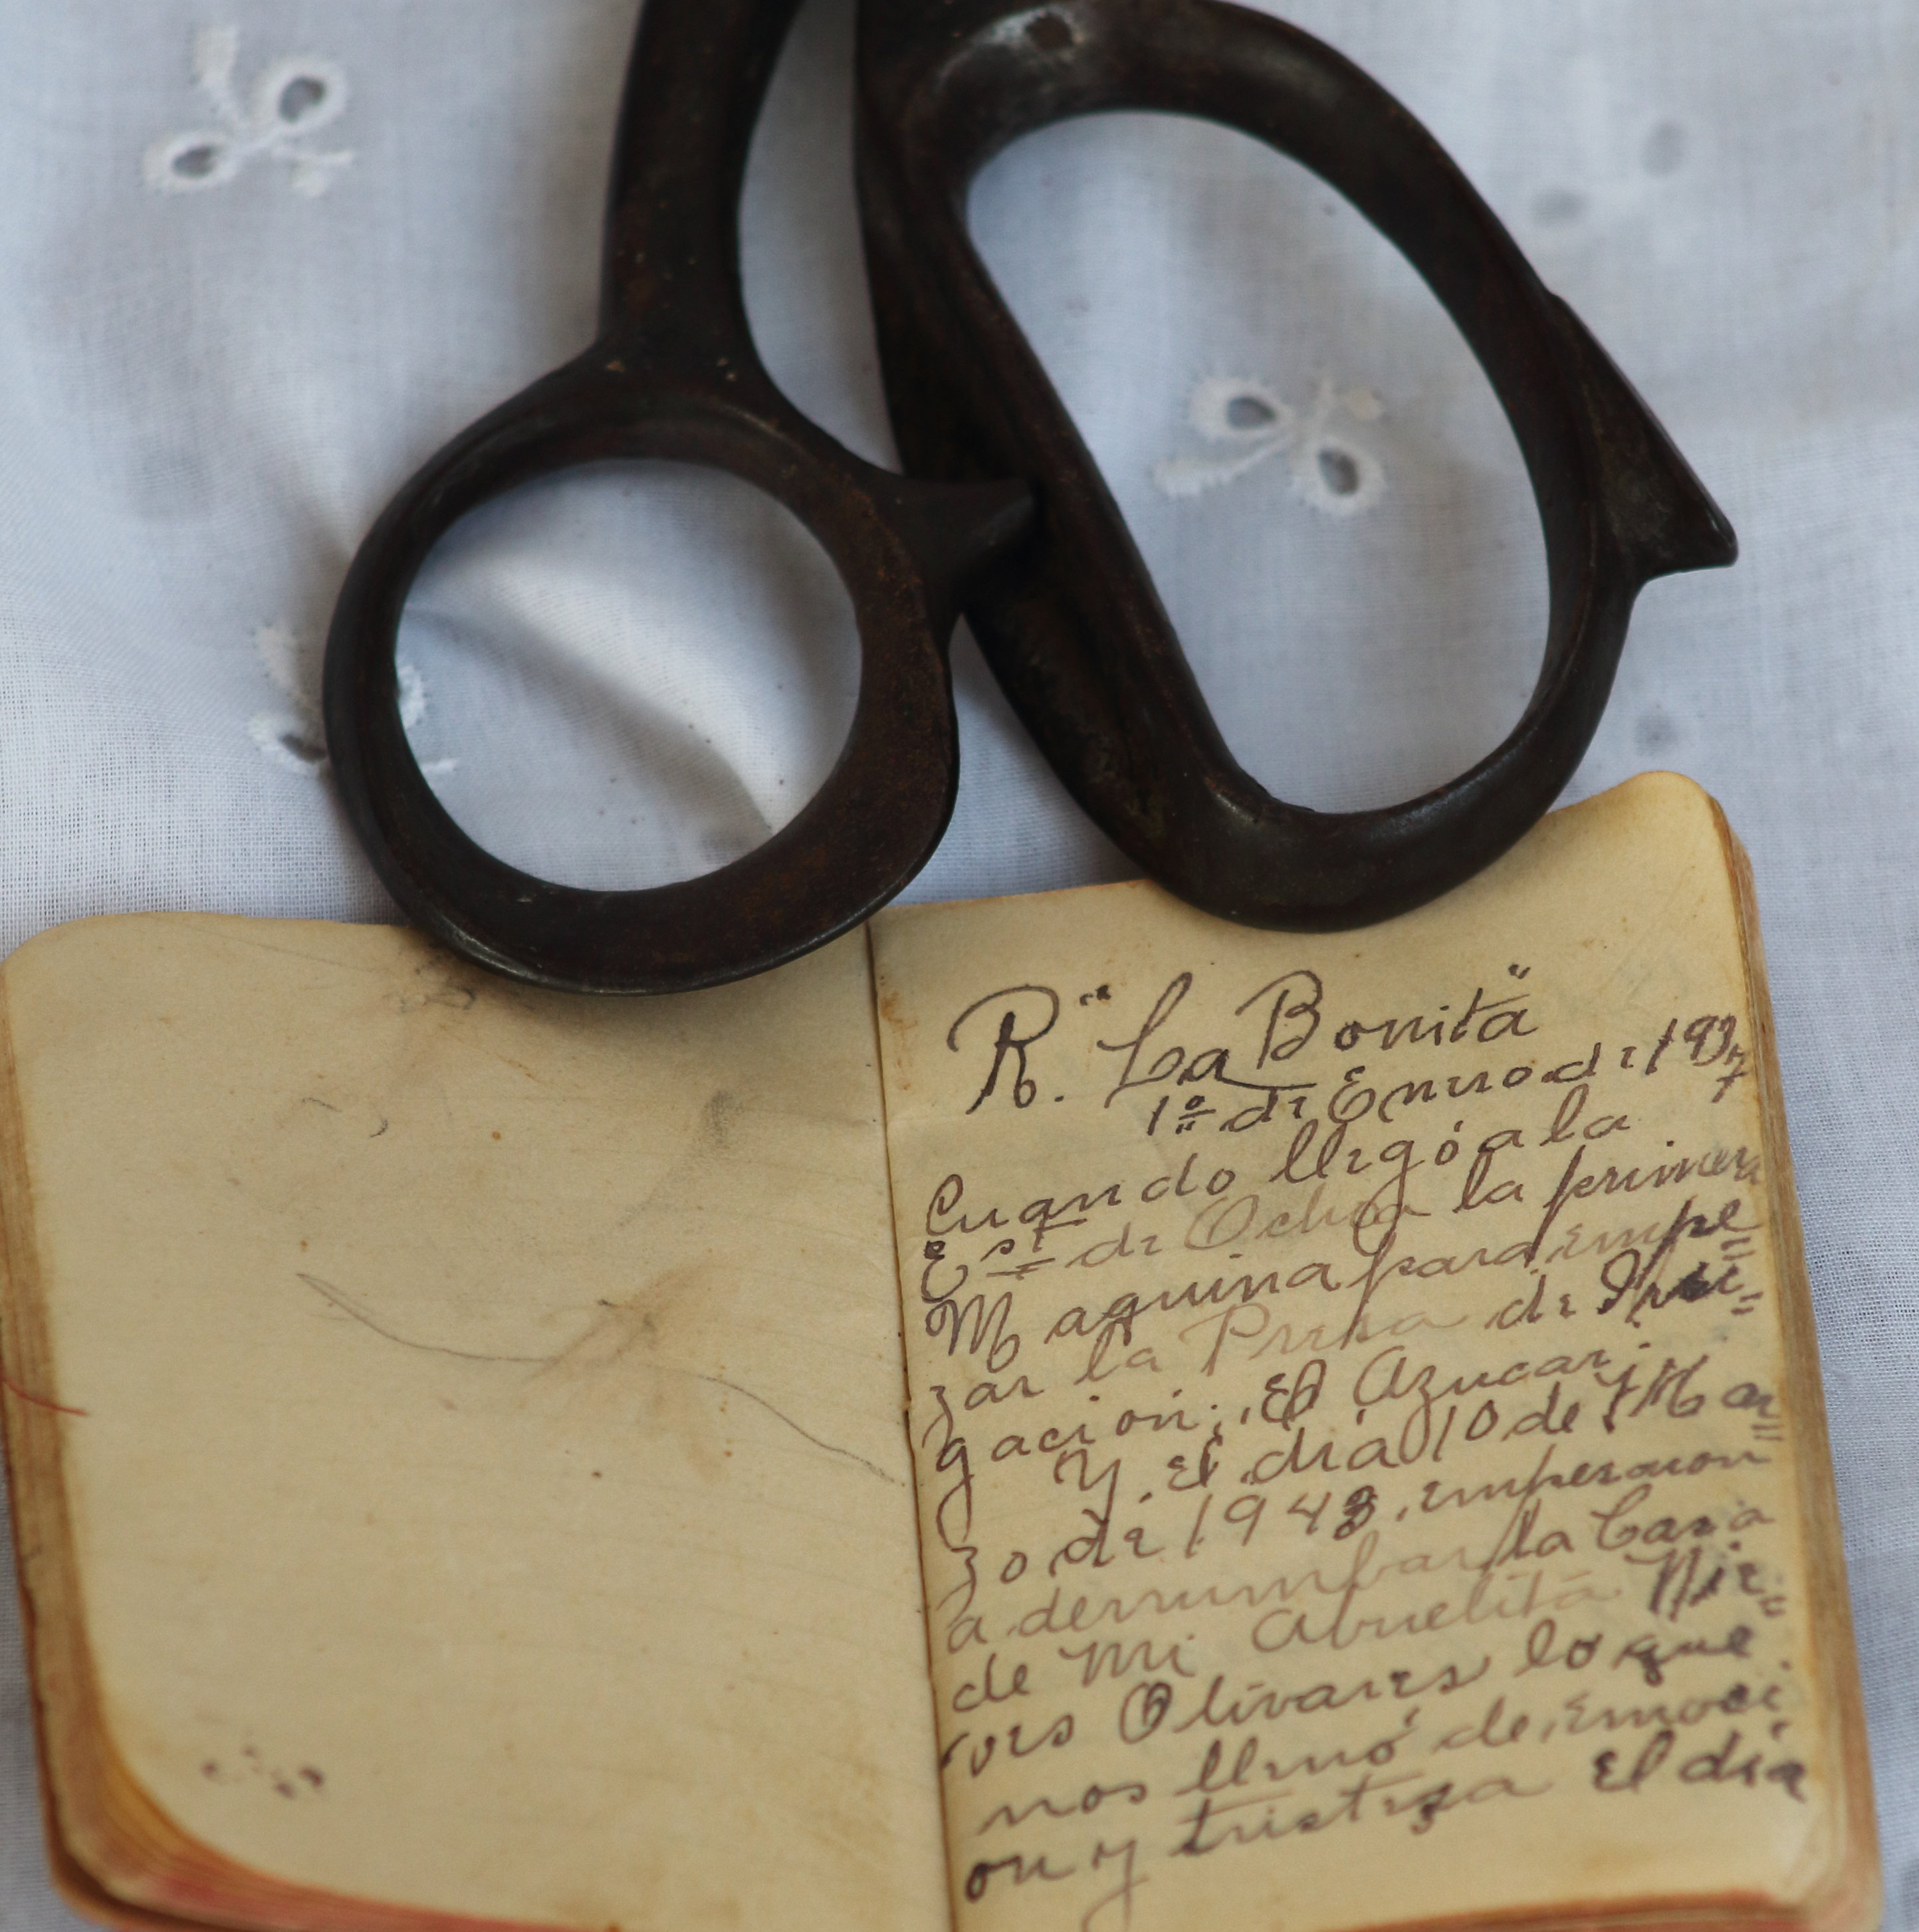 R. "La Bonita"
1º de Enero de 1937
Cuando llegó a la
Est de Ochoa la primera
Maquina para empe=
zar la Presa de Irri=
gación; El Azucar;
Y. El día 10 de Mar=
zo de 1943. empesaron
a derrumbar la Casa
de Mi Abuelita Nie=
ves Olivares lo que
nos llenó de, Emoci
on y tristeza El día